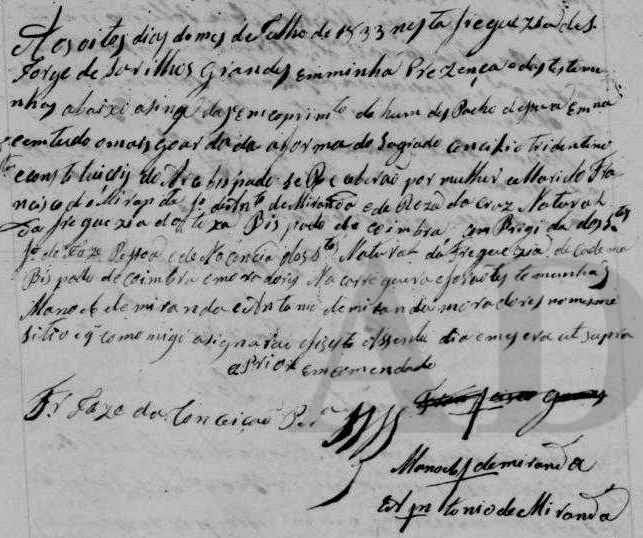 Aos oito dias do mes de Julho de 1833 nesta freguezia de S.
Jorge de Sarilhos Grandes em minha Prezença e das testemu
nhas abaixo asinadas em comprimto de hum despacho de sua Emna
e em tudo o mais goardada a forma do Sagrado concilio tridentino
e constituicois do Arcebispado se Receberão por mulher e Marido Fra
ncisco de Miranda fo de Anto de Miranda e de Roza da Cruz Natural
da freguezia de Bispado de Coimbra com Brigida dos Stos
fa de Joze Pessoa e de Naconcia dos Stos Natural da Freguezia de Cadema
Bispado de Coimbra e moradores Na Carregueira e forão testemunhas
Manoel de miranda e Antonio de miranda moradores no mesmo
sitio e q como migo asignarão e fiz este Assento dia e mes era ut supra
o Prior Emcomendado
Fr Joze da Conceição Pra
Manoel de miranda
Antonio de Miranda
AD